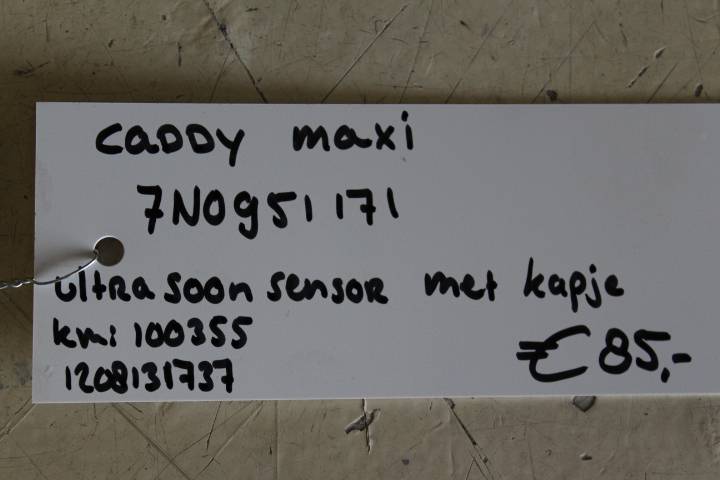 CADDY maxi
7N0951171
ultrasoon sensor met kapje
km: 100355
1208131737
€85,-